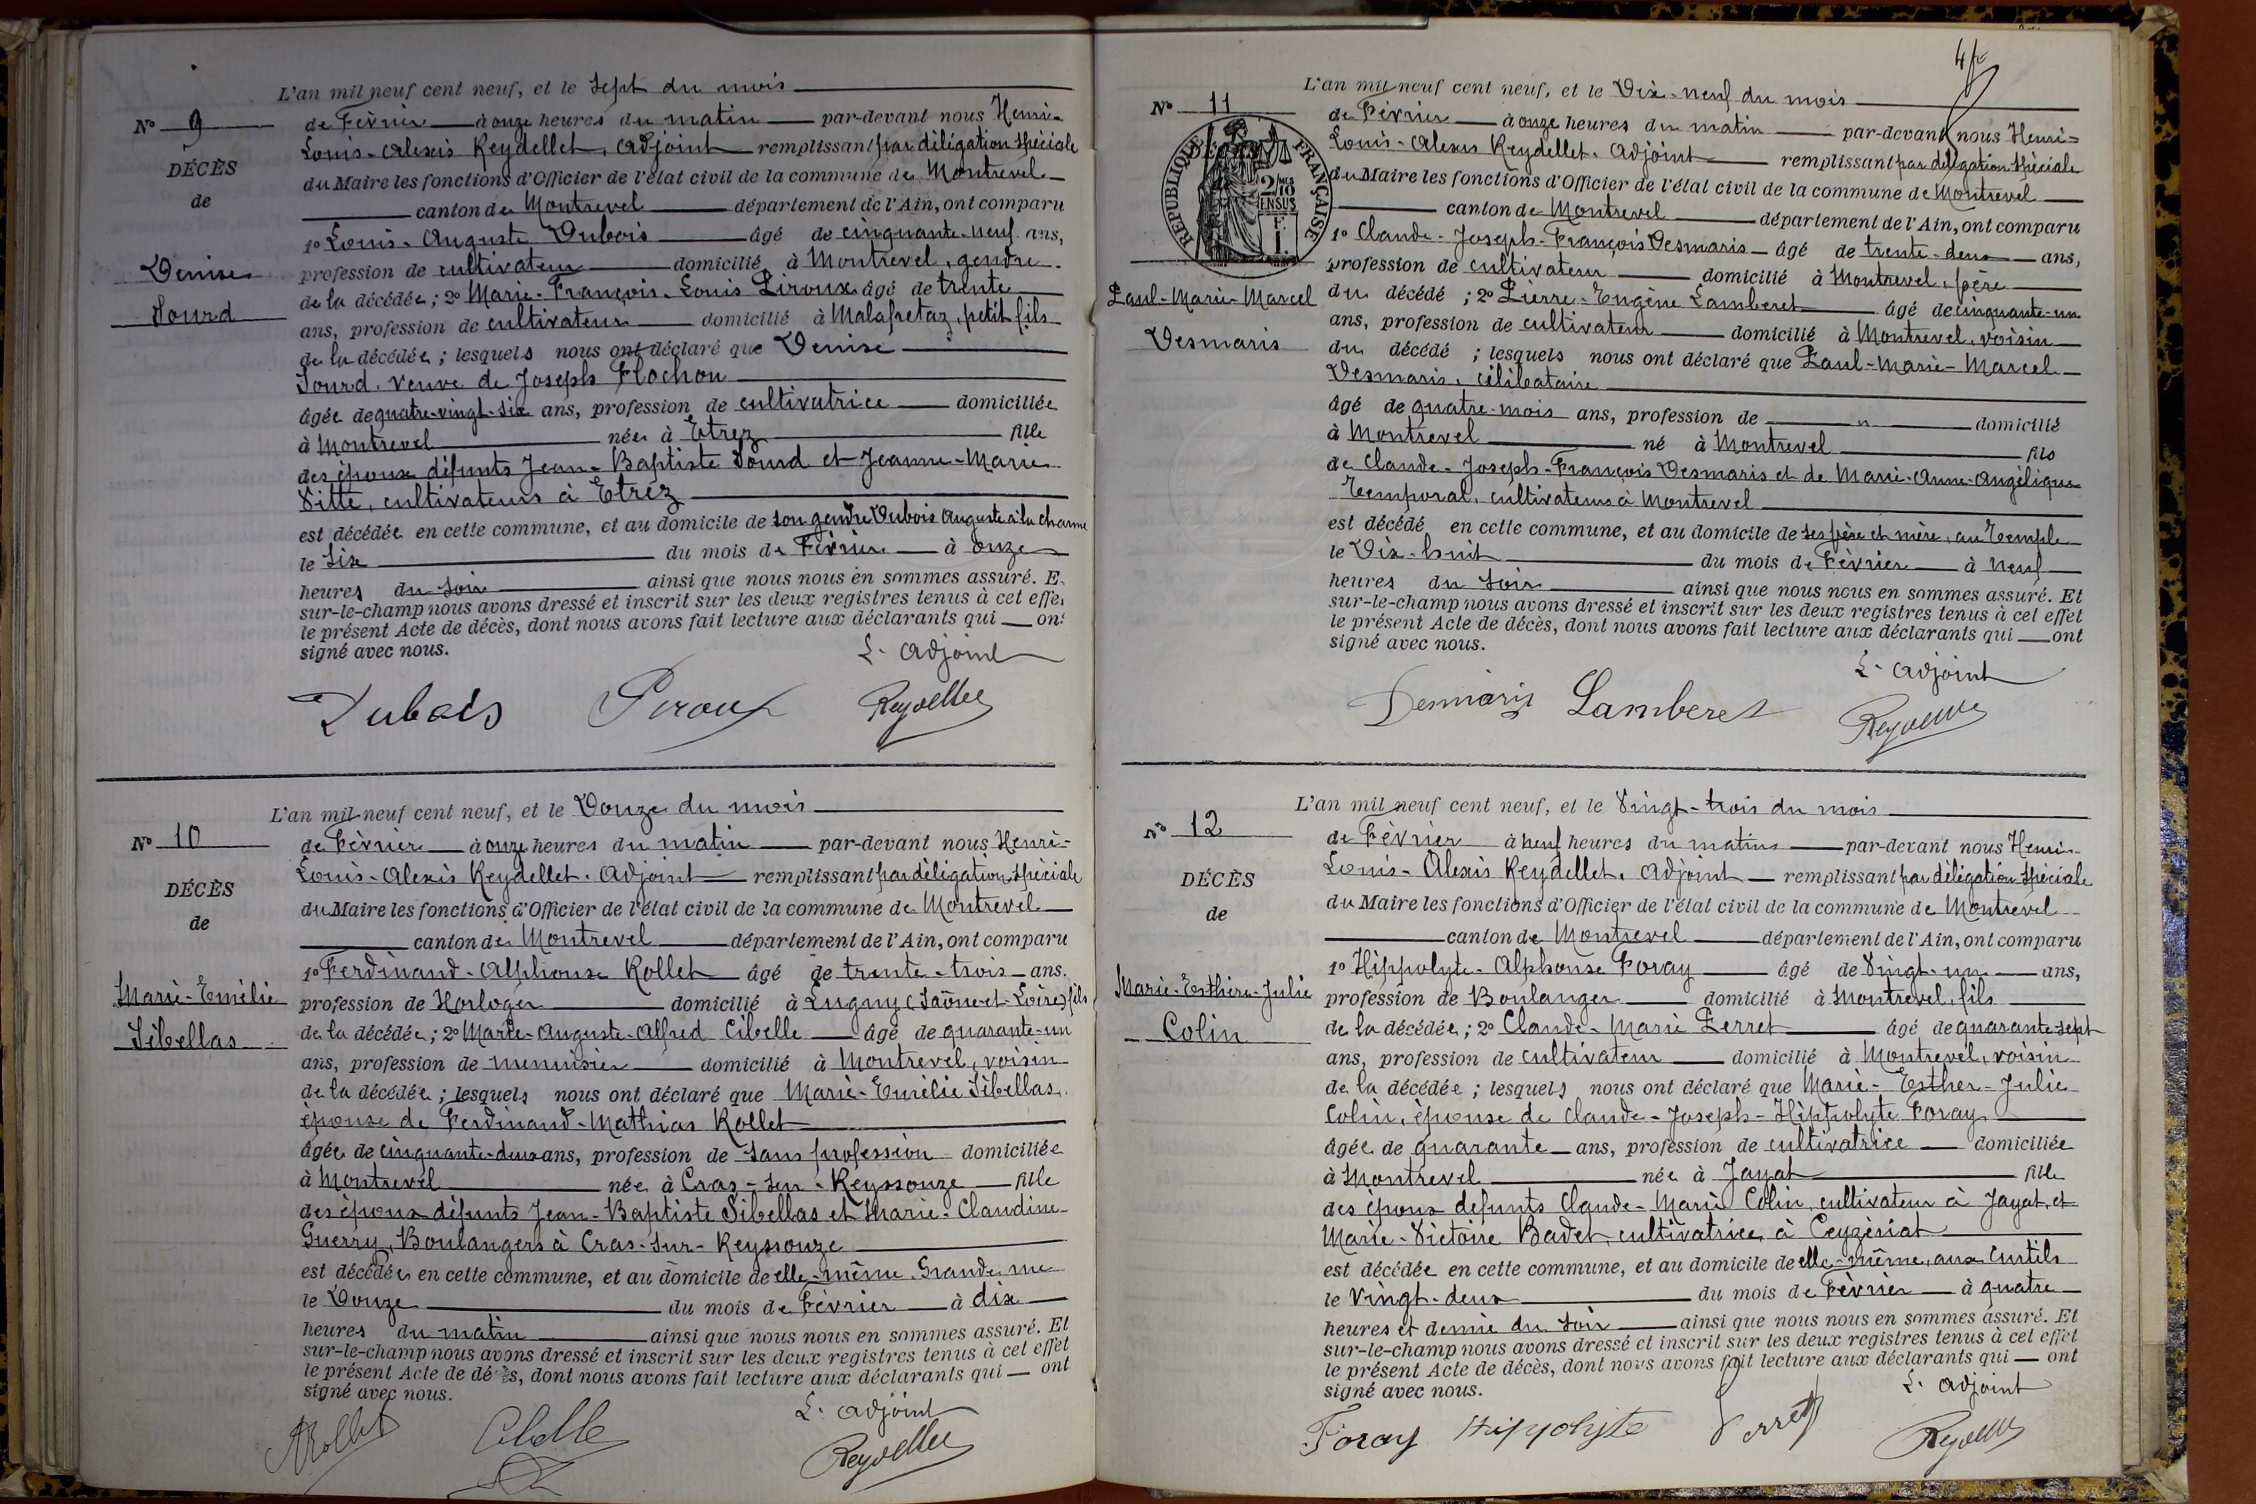 L'an mil neuf cent neuf, et le sept du mois
N° 9
de Février à onze heures du matin par-devant nous Henri-
Louis-Alexis Reydellet, Adjoint remplissant par délégation spéciale
DÉCÈS
du Maire les fonctions d'Officier de l'état civil de la commune de Montrevel
de
canton de Montrevel département de l'Ain, ont comparu
1° Louis-Auguste Dubois âgé de cinquante-neuf ans,
Denise
profession de cultivateur domicilié à Montrevel, gendre
de la décédée ; 2° Marie-François-Louis Piroux âgé de trente
Sourd
ans, profession de cultivateur domicilié à Malafretaz, petit fils
de la décédée ; lesquels nous ont déclaré que Denise
Sourd, veuve de Joseph Flochon
âgée de quatre-vingt-six ans, profession de cultivatrice domiciliée
à Montrevel née à Etrez fille
des époux défunts Jean-Baptiste Sourd et Jeanne-Marie
Vitte, cultivateurs à Etrez
est décédée en cette commune, et au domicile de son gendre Dubois Auguste à la Charme
le six du mois de Février à onze
heures du soir ainsi que nous nous en sommes assuré. E
sur-le-champ nous avons dressé et inscrit sur les deux registres tenus à cet effe
le présent Acte de décès, dont nous avons fait lecture aux déclarants qui ont
signé avec nous.
L. adjoint
Dubois Piroux Reydellet
L'an mil neuf cent neuf, et le Douze du mois
N° 10
de Février à onze heures du matin par-devant nous Henri-
Louis-Alexis Reydellet, Adjoint remplissant par délégation spéciale
DÉCÈS
du Maire les fonctions d'Officier de l'état civil de la commune de Montrevel
de
canton de Montrevel département de l'Ain, ont comparu
1° Ferdinand-Alphonse Rollet âgé de trente-trois ans.
Marie-Emélie
profession de Horloger domicilié à Lugny (Saône-et-Loire) fils
Sibellas
de la décédée ; 2° Marie-Auguste-Alfred Cibelle âgé de quarante-un
ans, profession de menuisier domicilié à Montrevel, voisin
de la décédée ; lesquels nous ont déclaré que Marie-Emélie Sibellas,
épouse de Ferdinand-Mathias Rollet
âgée de cinquante-deux ans, profession de sans profession domiciliée
à Montrevel née à Cras-sur-Reyssouze fille
des époux défunts Jean-Baptiste Sibellas et Marie-Claudine-
Guerry, Boulangers à Cras-sur-Reyssouze
est décédée en cette commune, et au domicile de elle-même, Grande rue
le Douze du mois de Février à dix
heures du matin ainsi que nous nous en sommes assuré. Et
sur-le-champ nous avons dressé et inscrit sur les deux registres tenus à cet effet
le présent Acte de décès, dont nous avons fait lecture aux déclarants qui ont
signé avec nous.
L. adjoint
ARollet Cibelle Reydellet
L'an mil neuf cent neuf, et le Dix-neuf du mois
N° 11
de Février à onze heures du matin par-devant nous Henri-
Louis-Alexis Reydellet, Adjoint remplissant par délégation spéciale
DÉCÈS
RÉPUBLIQUE FRANÇAISE
2/10 EN SUS
du Maire les fonctions d'Officier de l'état civil de la commune de Montrevel
canton de Montrevel département de l'Ain, ont comparu
1° Claude-Joseph-François Desmaris âgé de trente-deux ans,
profession de cultivateur domicilié à Montrevel, père
Paul-Marie-Marcel
du décédé ; 2° Pierre-Eugène Lamberet âgé de cinquante-un
Desmaris
ans, profession de cultivateur domicilié à Montrevel, voisin
du décédé ; lesquels nous ont déclaré que Paul-Marie-Marcel
Desmaris, célibataire
âgé de quatre-mois ans, profession de " domicilié
à Montrevel né à Montrevel fils
de Claude-Joseph-François Desmaris et de Marie-Anne-Angélique
Temporal, cultivateurs à Montrevel
est décédé en cette commune, et au domicile de ses père et mère, au Temple
le Dix-huit du mois de Février à neuf
heures du soir ainsi que nous nous en sommes assuré. Et
sur-le-champ nous avons dressé et inscrit sur les deux registres tenus à cet effet
le présent Acte de décès, dont nous avons fait lecture aux déclarants qui ont
signé avec nous.
L. adjoint
Desmaris Lamberet Reydellet
L'an mil neuf cent neuf, et le Vingt-trois du mois
N° 12
de Février à neuf heures du matin par-devant nous Henri-
Louis-Alexis Reydellet, Adjoint remplissant par délégation spéciale
DÉCÈS
du Maire les fonctions d'Officier de l'état civil de la commune de Montrevel
de
canton de Montrevel département de l'Ain, ont comparu
1° Hippolyte-Alphonse Foray âgé de Vingt-un ans,
Marie-Esther-Julie
profession de Boulanger domicilié à Montrevel, fils
Colin
de la décédée ; 2° Claude-Marie Perret âgé de quarante-sept
ans, profession de cultivateur domicilié à Montrevel, voisin
de la décédée ; lesquels nous ont déclaré que Marie-Esther-Julie
Colin, épouse de Claude-Joseph-Hippolyte Foray
âgée de quarante ans, profession de cultivatrice domiciliée
à Montrevel née à Jayat fille
des époux défunts Claude-Marie Colin, cultivateur à Jayat, et
Marie-Victoire Badet, cultivatrice, à Ceyzériat
est décédée en cette commune, et au domicile de elle-même, aux Curtils
le Vingt-deux du mois de Février à quatre
heures et demie du soir ainsi que nous nous en sommes assuré. Et
sur-le-champ nous avons dressé et inscrit sur les deux registres tenus à cet effet
le présent Acte de décès, dont nous avons fait lecture aux déclarants qui ont
signé avec nous.
L. adjoint
Foray Hippolyte Perret Reydellet